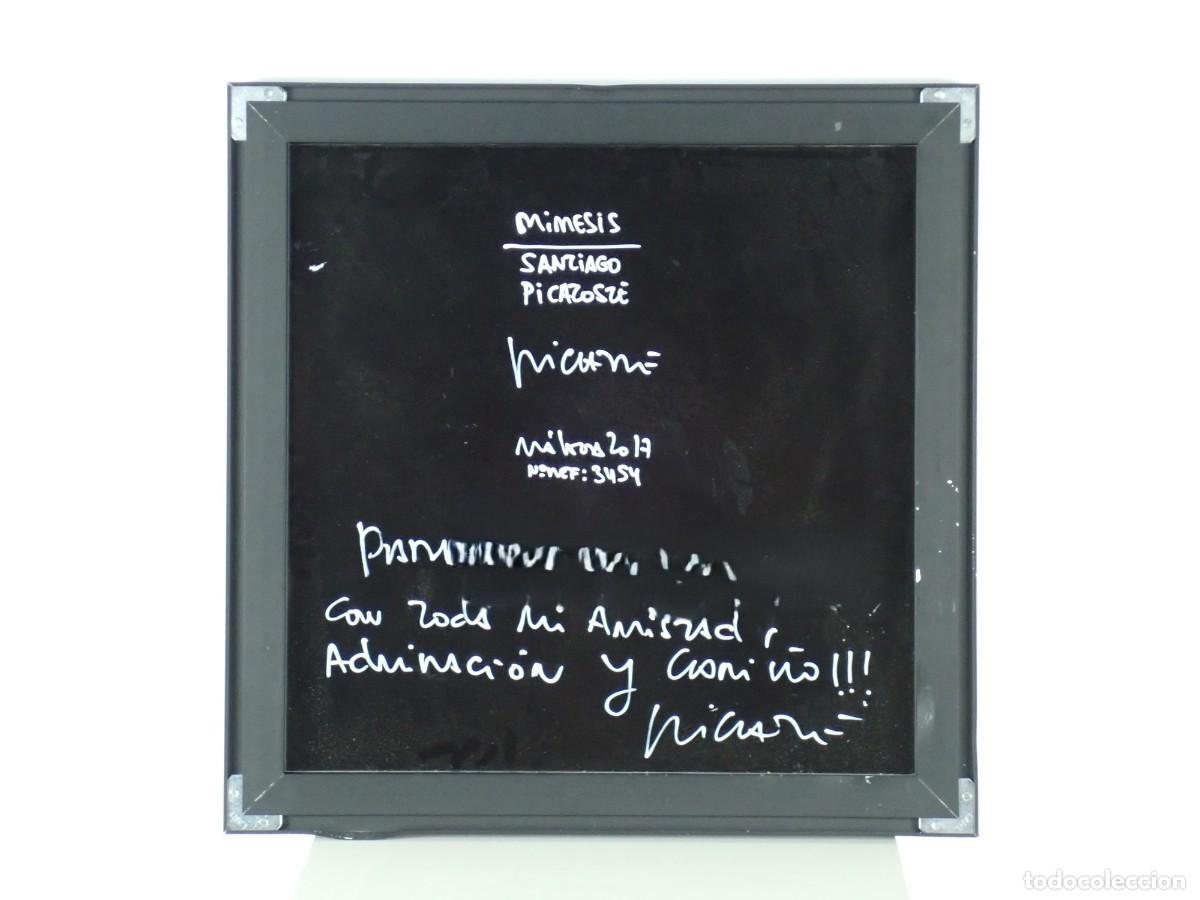 MiMESiS
SANTiAGO
PiCATOSTE
Picatoste
2017
Nº REF: 3454
Para
Con toda mi Amistad,
Admiración y Cariño!!!
Picatoste
todocoleccion